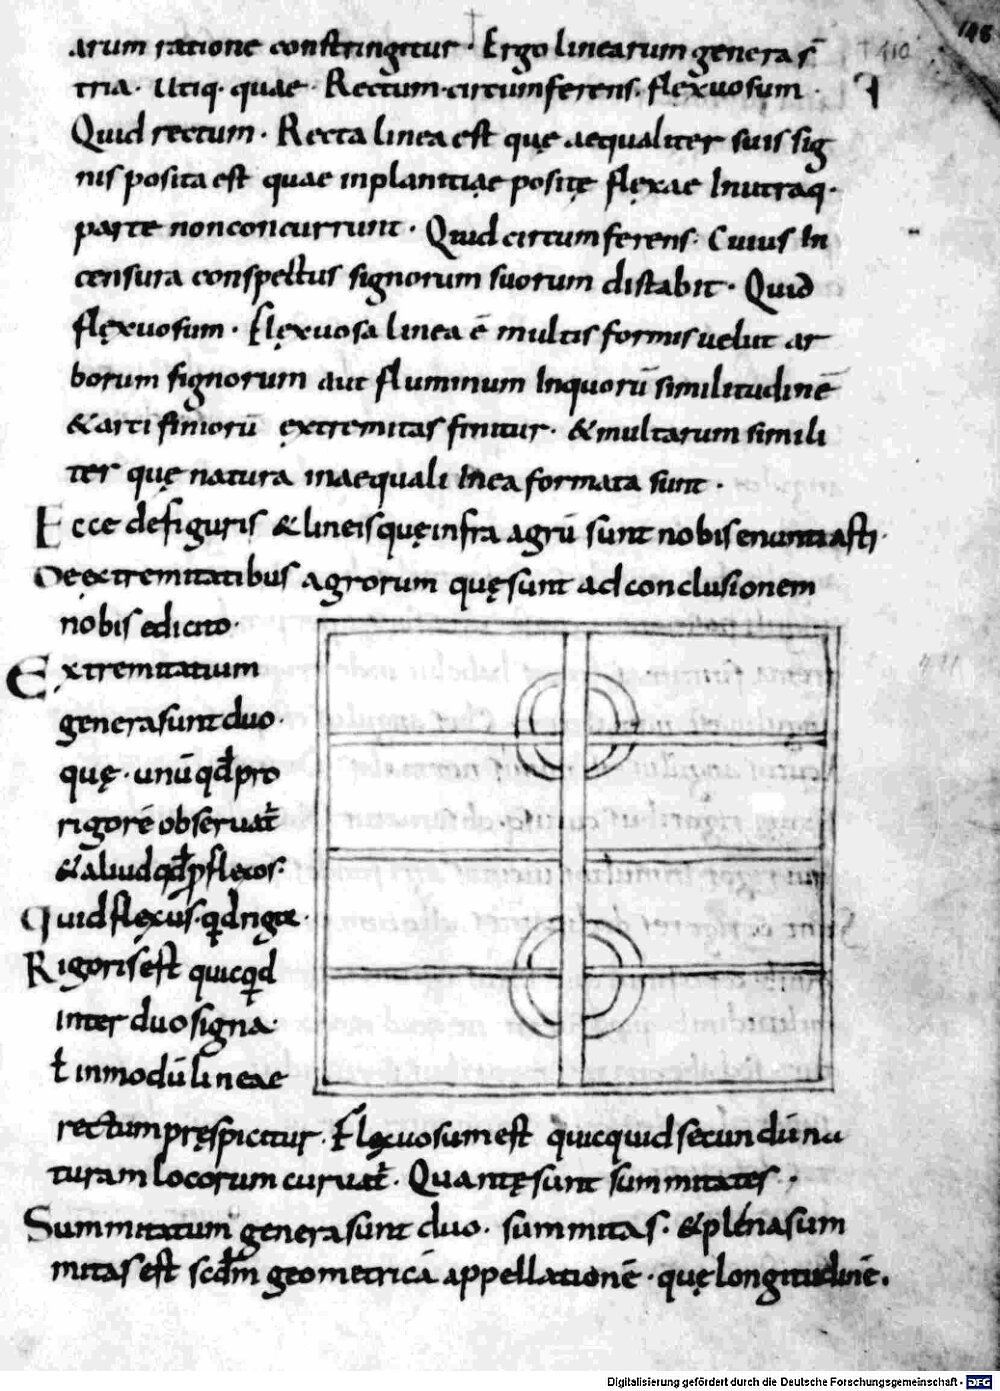 arum ratione constringitur · Ergo linearum genera s̄
tria · Utiq· quae · Rectum · circumferens · flexuosum ·
Quid rectum · Recta linea est quę aequaliter suis sig
nis posita est quae inplanitiae positę flexae Inutraq·
parte nonconcurrunt · Quid circumferens · Cuius In
censura conspectus signorum suorum distabit · Quid
flęxuosum · Flęxuosa linea ē multis formis uelut ar
borum signorum aut fluminum Inquorū similitudinē
& arcifiniorū ęxtremitas finitur · & multarum simili
ter quę natura inaequali linea formata sunt ·
Ecce defiguris & lineis quę infra agrū sunt nobis enuntiasti·
De extremitatibus agrorum quę sunt ad conclusionem
nobis edicito·
Extremitatium
genera sunt duo·
quę · unū qđ pro
rigorē obseruat̄
& aliud qđ p flexos·
Quid flexus · qđ rigor ·
Rigoris est quicqđ
inter duo signa·
ł inmodū lineae
rectum pręspicitur · Flexuosum est quicquid secundū na
turam locorum curuat̄ · Quantę sunt summitates ·
Summitatum genera sunt duo · summitas · & plena sum
mitas est scđm geometricā appellationē · quę longitudinē ·
148
410
411
Digitalisierung gefördert durch die Deutsche Forschungsgemeinschaft - DFG